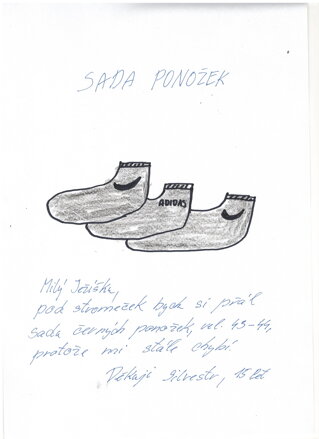 SADA PONOŽEK
ADIDAS
Milý Ježíšku,
pod stromeček bych si přál
sadu černých ponožek, vel. 43-44,
protože mi stále chybí.
Děkuji Silvestr, 15 let